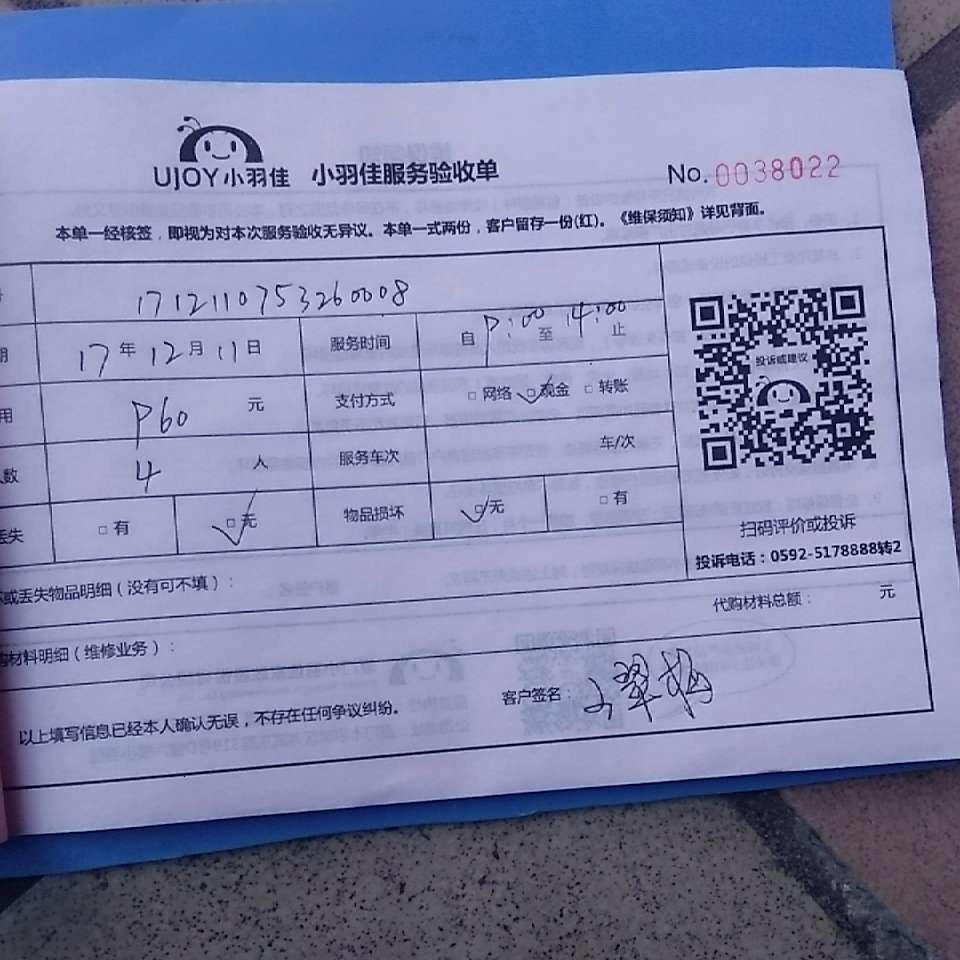 UJOY小羽佳 小羽佳服务验收单 No.0038022
本单一经核签，即视为对本次服务验收无异议。本单一式两份，客户留存一份(红)。《维保须知》详见背面。
1712110753260008
期 17 年 12 月 11 日 服务时间 自 P:00 至 14:00 止
用 P60 元 支付方式 □ 网络 □ 现金 □ 转账
人数 4 人 服务车次 车/次
丢失 □ 有 □ 无 物品损坏 □ 无 □ 有
投诉或建议
扫码评价或投诉
投诉电话：0592-5178888转2
或丢失物品明细（没有可不填）：
代购材料总额： 元
购材料明细（维修业务）：
以上填写信息已经本人确认无误，不存在任何争议纠纷。 客户签名：